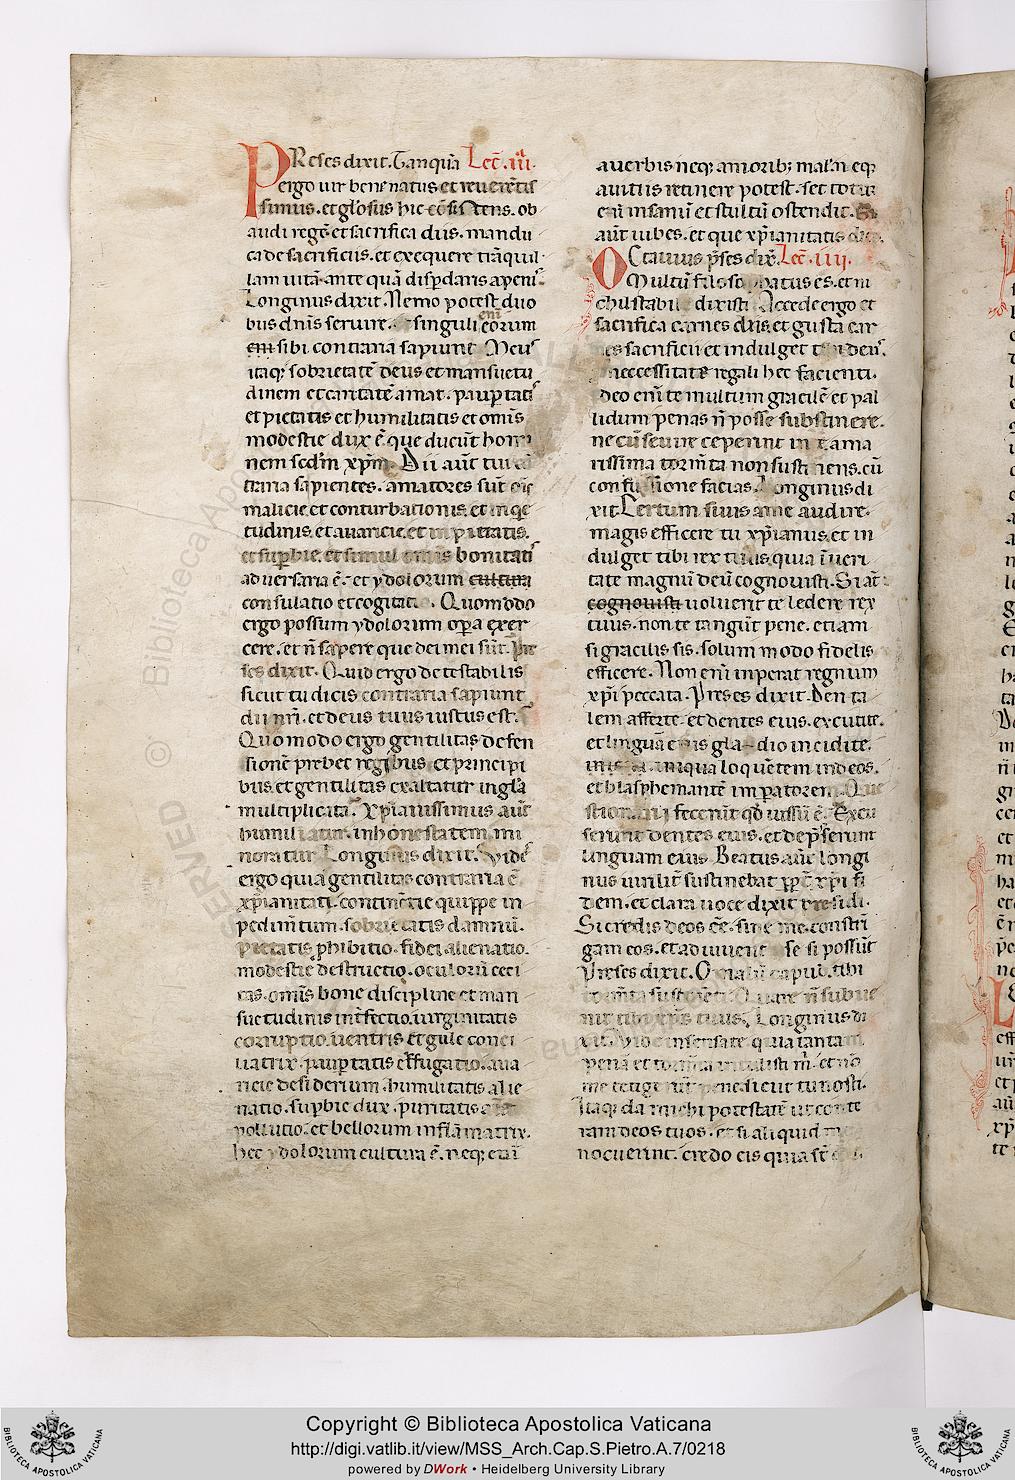 PReses dixit. Tanquā Lec̄. iii.
ergo uir bene natus et reuerētis
simus. et gl'osus hic cōsistens. ob
audi regē et sacrifica diis. mandu
ca de sacrificiis. et exequere trāquil
lam uitā. ante quā disp̄daris a penis.
Longinus dixit. Nemo potest duo
bus dnīs seruire. singuli enī eorum
sibi contraria sapiunt Meus
itaq; sobrietatē deus et mansuetu
dinem et caritatē amat. paup̄tatis
et pietatis et humilitatis et omīs
modestie dux ē. que ducūt homi
nem sed'm xp̄m. Dii aūt tui cō
traria sapientes. amatores sūt omīs
malicie. et conturbationis. et inqe
tudinis. et auaricie. et inpietatis.
et sup̄bie. et simul omīs bonitatis
aduersaria ē. et ydolorum cultura
consulatio et cogitatio. Quomodo
ergo possum ydolorum op̄a exer
cere. et n̄ sapere que dei mei sūt. Pre
ses dixit. Quid ergo detestabilis
sicut tu dicis contraria sapiunt
dii nr̄i. et deus tuus iustus est.
Quomodo ergo gentilitas defen
sionē prebet regibus et principi
bus. et gentilitas exaltatur in gl'a
multiplicata. Xp̄ianissimus aūt
humiliatur. inhonestatem. mi
noratur Longinus dixit. Vide
ergo quia gentilitas contraria ē
xp̄ianitati. continētie quippe in
pedim̄tum. sobrietatis damnū.
pietatis p̄hibitio. fidei alienatio.
modestie destructio. oculorū ceci
tas. omīs bone discipline et man
suetudinis int̄fectio. uirginitatis
corruptio. uentris et gule conci
liatrix. paup̄tatis effugatio. aua
ricie desiderium. humilitatis alie
natio. sup̄bie dux. puritatis
pollutio. et bellorum inflāmatrix.
hec ydolorum cultura ē. neq; enī
a uerbis neq; a morib; malā neq;
a uitiis retinere potest. set totū
eū insanū et stultū ostendit. Si
aūt iubes. et que xp̄ianitatis
OCtauius p̄ses dix. Lec̄. iiii.
Multū filosophatus es. et in
dixisti Accede ergo et
sacrifica carnes diis. et gusta car
nes sacrificii et indulget tibi deus.
neccessitate regali hec facienti.
Ideo enī te multum gracilē et pal
lidum penas n̄ posse substinere.
ne cū seuire ceperint in te ama
rissima torm̄ta non sustinens. cū
confussione facias. Longinus di
xit. Certum si uis a me audire.
magis efficere tu xp̄ianus. et in
dulget tibi rex tuus. quia ī ueri
tate magnū deū cognouisti. Si aūt
cognouisti uoluerit te ledere rex
tuus. non te tangūt pene. etiam
si gracilis sis. solum modo fidelis
efficere. Non enī inperat regnum
xp̄i peccata. Preses dixit. Den ta
lem afferte. et dentes eius. excutite.
et linguā eius gladio incidite.
iniqua loquētem in deos.
et blasphemantē imp̄atorem. Que
stionarii fecerūt q̄d iussū ē. Excu
serunt dentes eius. et dep̄serunt
linguam eius Beatus aūt Longi
nus uirilit̄ sustinebat pp̄t̄ xp̄i fi
dem. et clara uoce dixit presidi.
Si credis deos cē. sine me. constrī
gam eos. et adiuuent se si possūt
Preses dixit. capud. tibi
Quare n̄ subue
nit tibi xp̄s tuus. Longinus di
xit. Vide insensate quia tantam
penā et torm̄ta intulisti m̄. et nō
me tetigerūt pene. sicut tu nosti.
Itaq; da michi potestatē ut conte
ram deos tuos. et si aliquid
nocuerint. credo eis quia sūt
Copyright © Biblioteca Apostolica Vaticana
http://digi.vatlib.it/view/MSS_Arch.Cap.S.Pietro.A.7/0218
powered by DWork • Heidelberg University Library
BIBLIOTECA APOSTOLICA VATICANA
BIBLIOTECA APOSTOLICA VATICANA